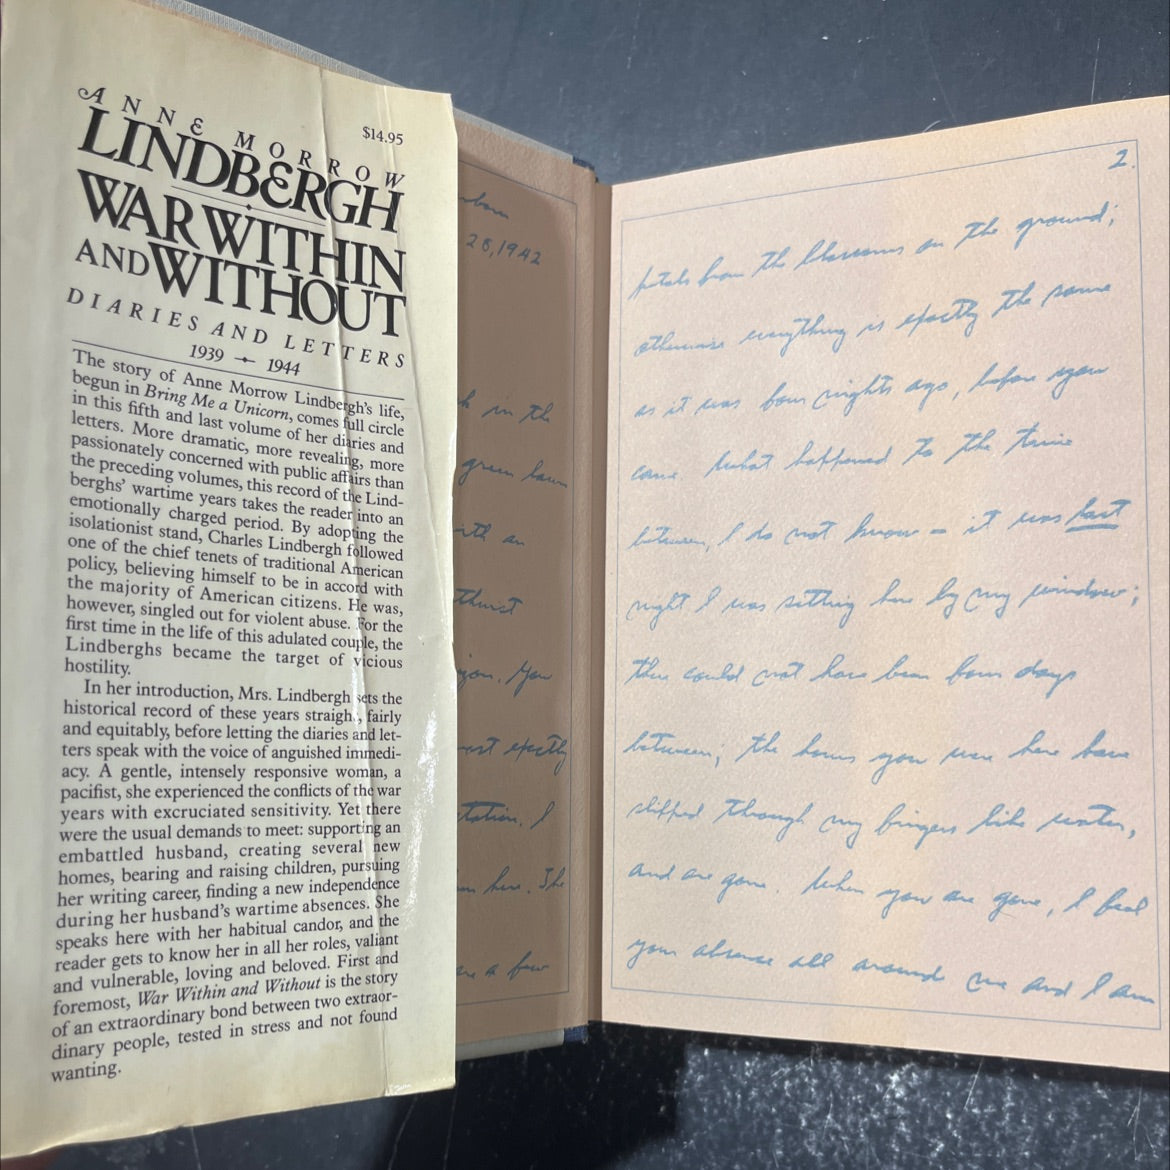 ANNE MORROW
$14.95
LINDBERGH
WAR WITHIN
AND WITHOUT
DIARIES AND LETTERS
1939 1944
The story of Anne Morrow Lindbergh's life,
begun in Bring Me a Unicorn, comes full circle
in this fifth and last volume of her diaries and
letters. More dramatic, more revealing, more
passionately concerned with public affairs than
the preceding volumes, this record of the Lind-
berghs' wartime years takes the reader into an
emotionally charged period. By adopting the
isolationist stand, Charles Lindbergh followed
one of the chief tenets of traditional American
policy, believing himself to be in accord with
the majority of American citizens. He was,
however, singled out for violent abuse. For the
first time in the life of this adulated couple, the
Lindberghs became the target of vicious
hostility.
In her introduction, Mrs. Lindbergh sets the
historical record of these years straight, fairly
and equitably, before letting the diaries and let-
ters speak with the voice of anguished immedi-
acy. A gentle, intensely responsive woman, a
pacifist, she experienced the conflicts of the war
years with excruciated sensitivity. Yet there
were the usual demands to meet: supporting an
embattled husband, creating several new
homes, bearing and raising children, pursuing
her writing career, finding a new independence
during her husband's wartime absences. She
speaks here with her habitual candor, and the
reader gets to know her in all her roles, valiant
and vulnerable, loving and beloved. First and
foremost, War Within and Without is the story
of an extraordinary bond between two extraor-
dinary people, tested in stress and not found
wanting.
28, 1942
in the
green lawn
an
you. You
exactly
I
here. She
a few
2.
petals from the blossoms on the ground;
otherwise everything is exactly the same
as it was four nights ago, before you
came. What happened to the time
between, I do not know – it was last
night I was sitting here by my window;
there could not have been four days
between; the hours you were here have
slipped through my fingers like water,
and are gone. When you are gone, I feel
your absence all around me and I am